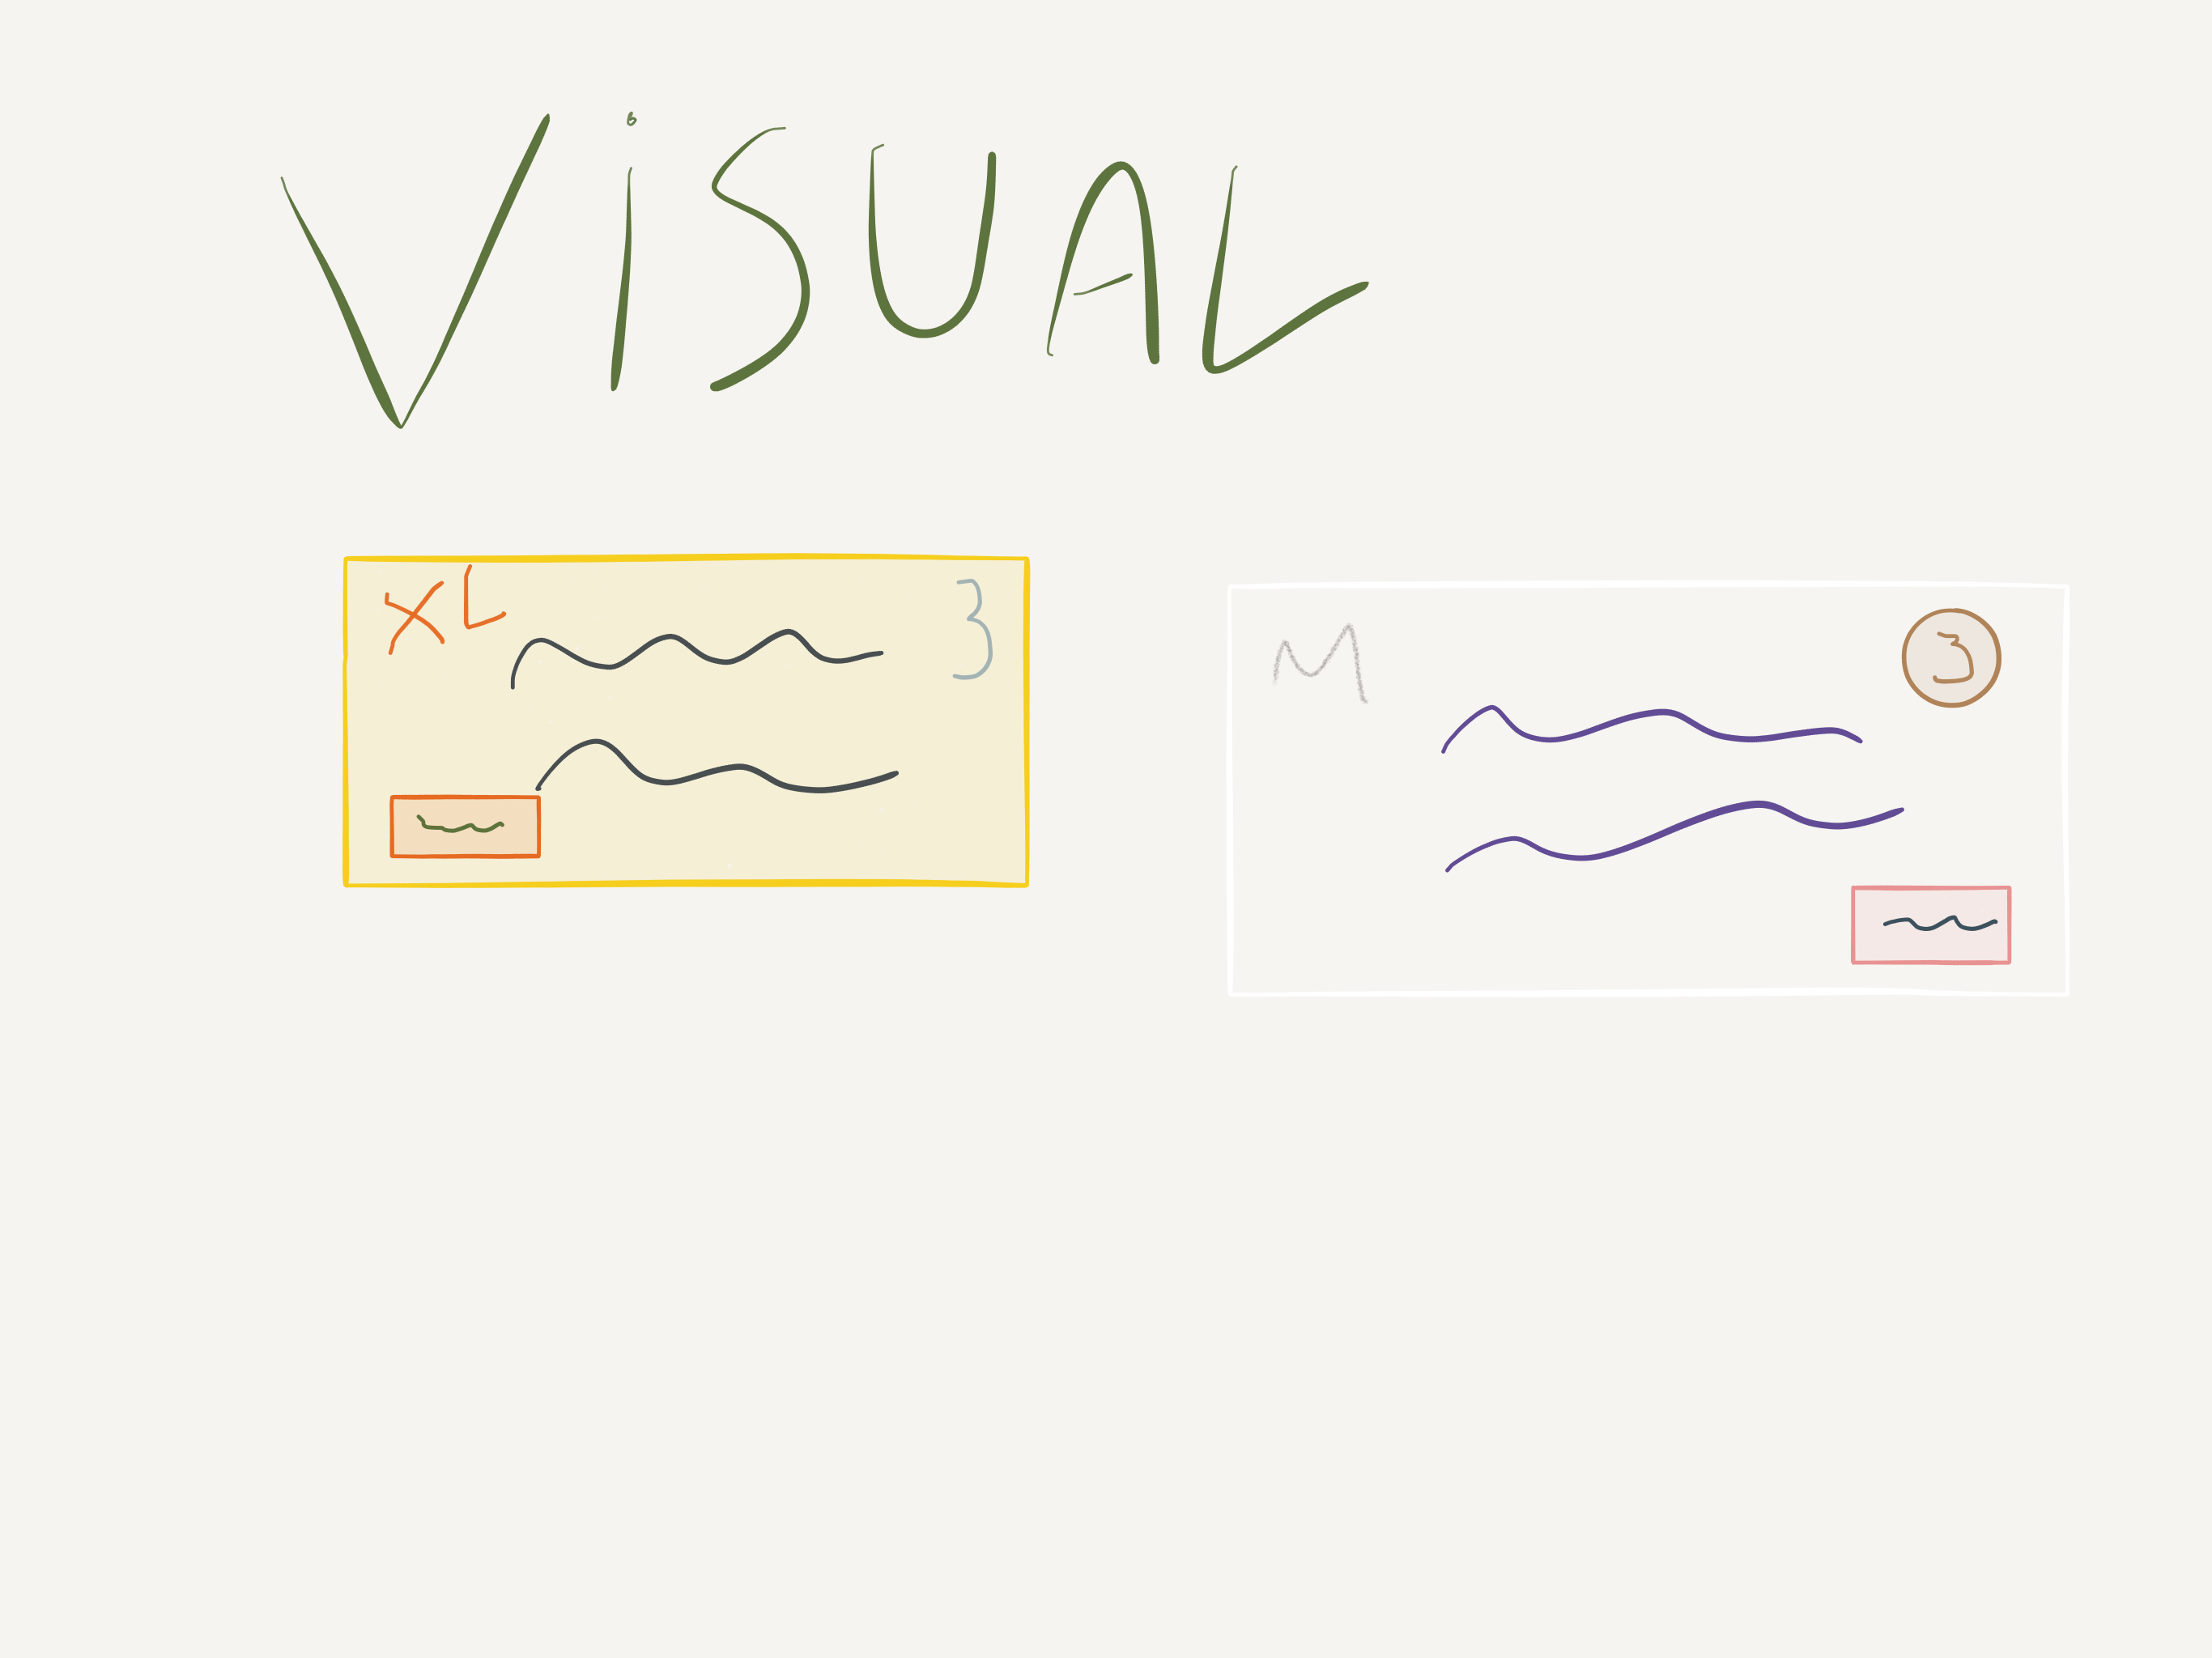 ViSUAL
XL 3
M 3